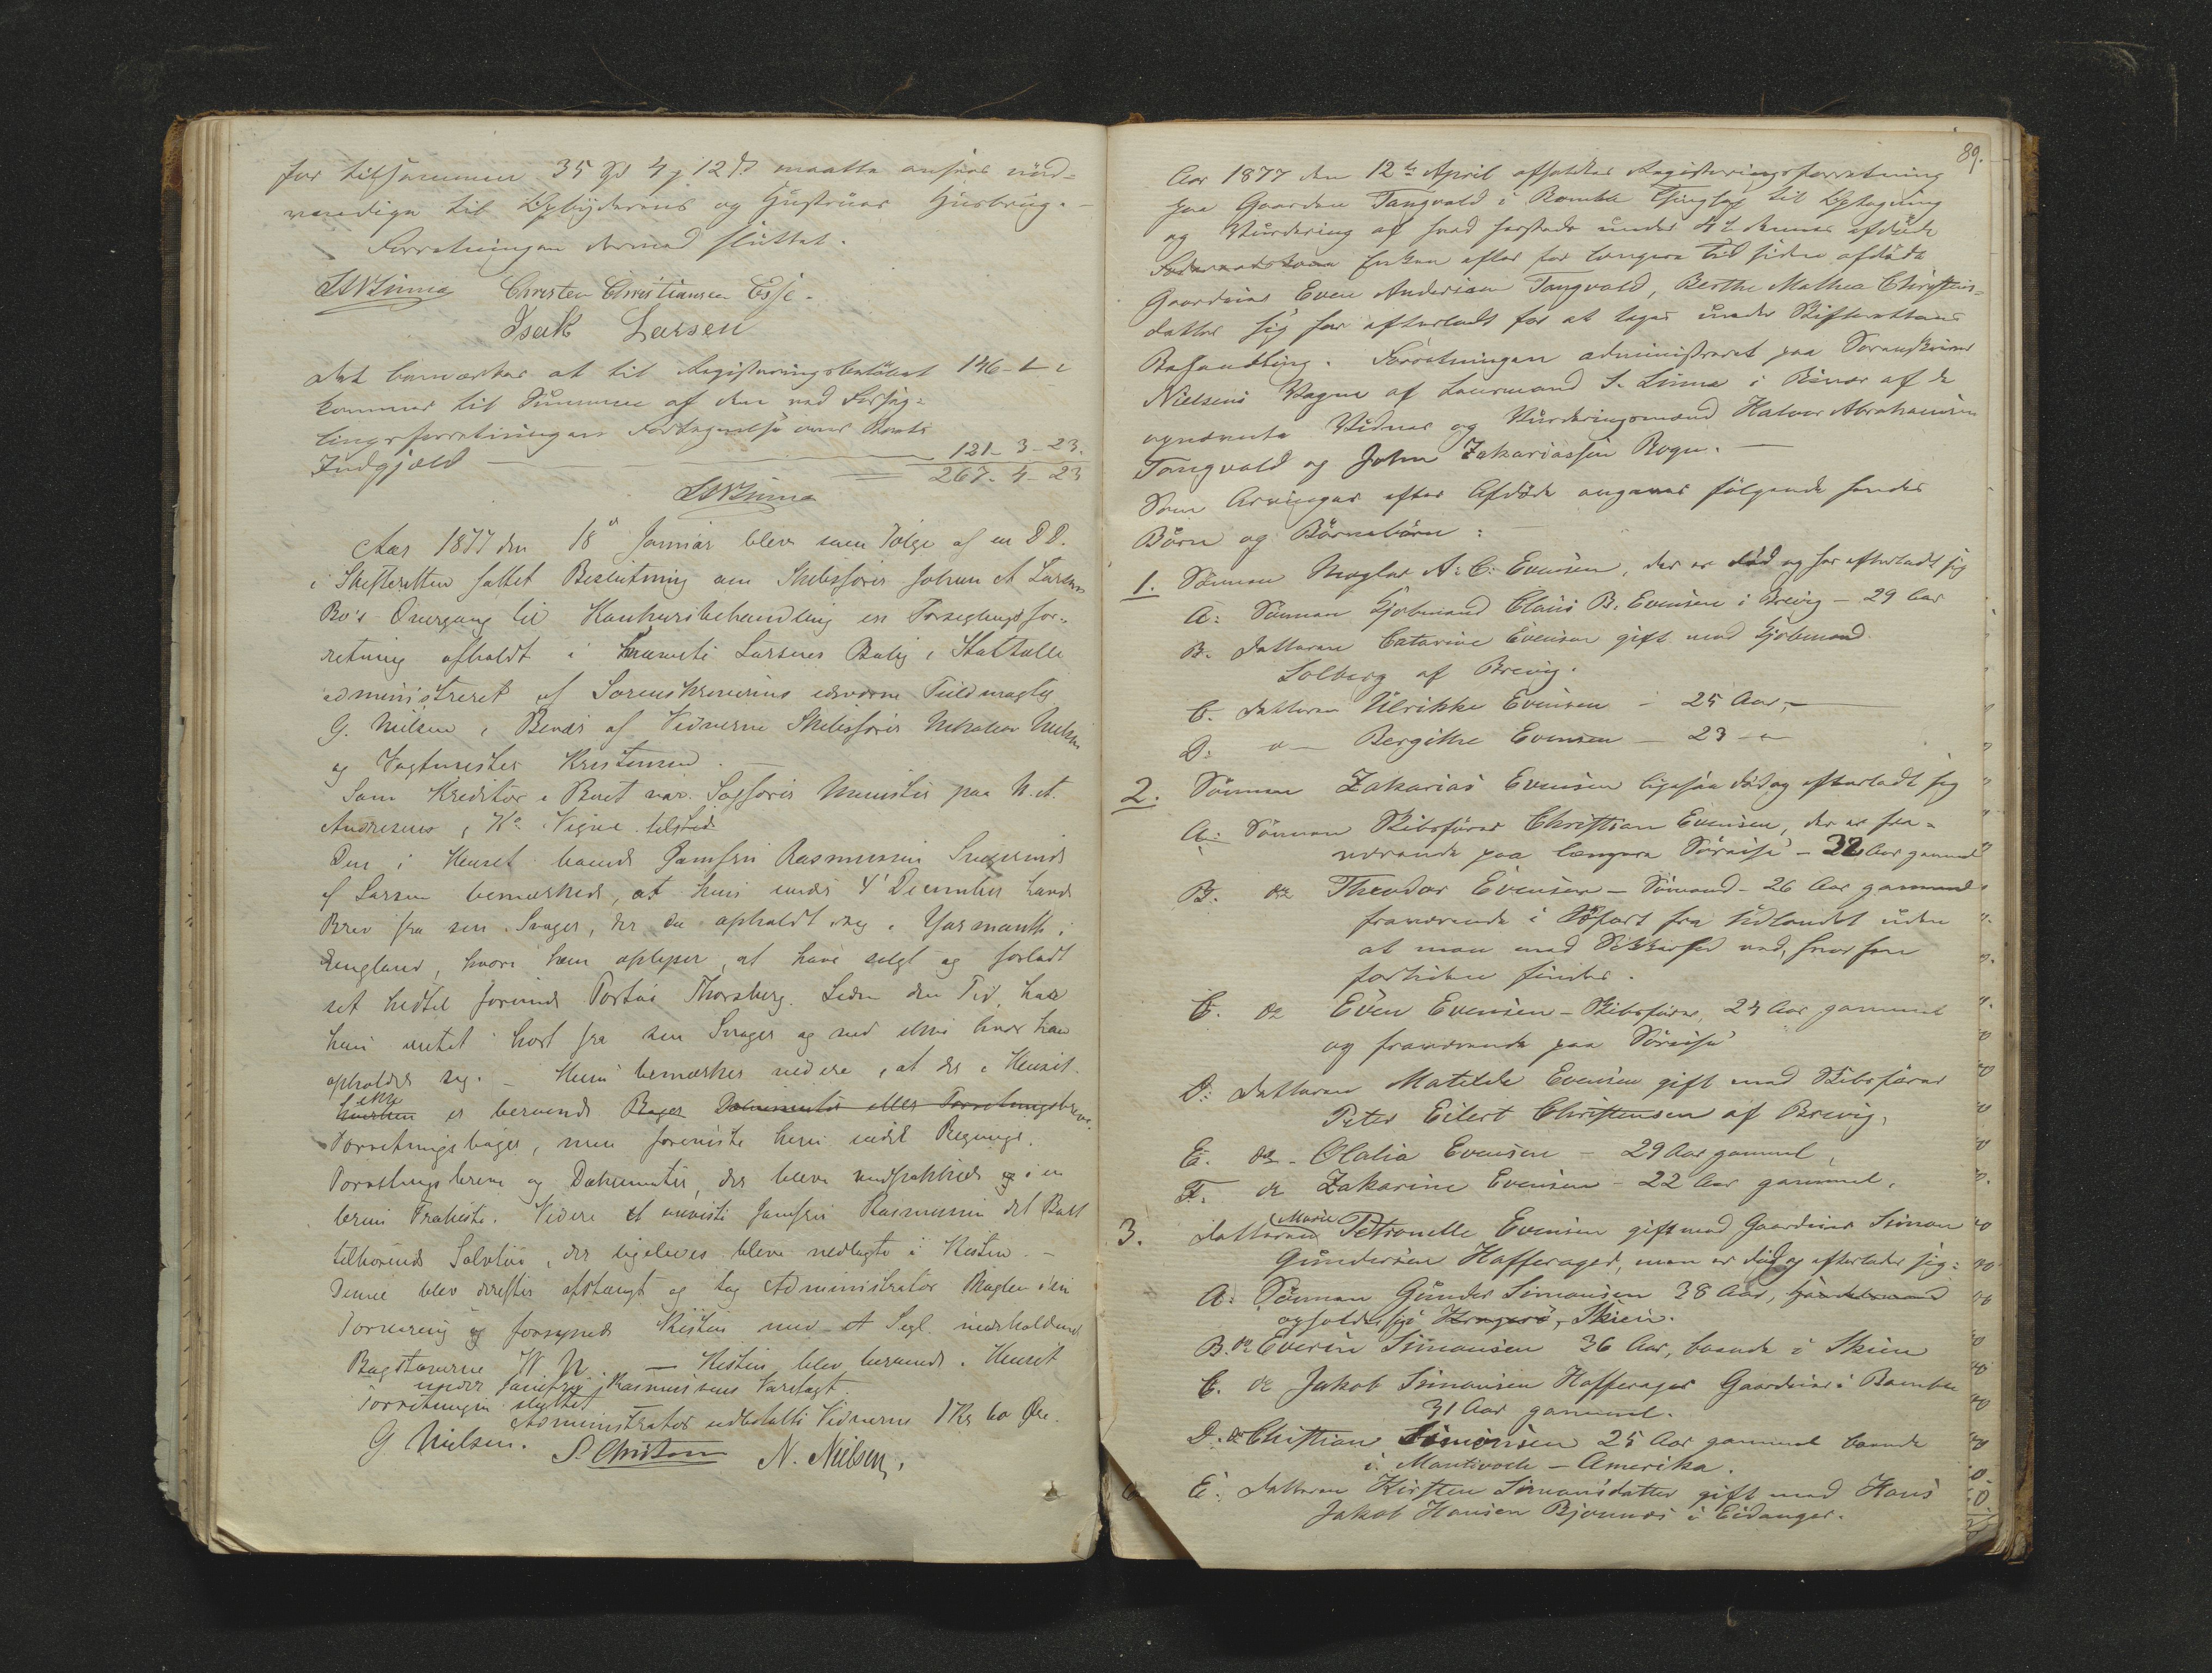 for tilsammen 35 Spd 4 ʒ 12 ß maatte ansees nød-
vendige til Opbyderens og Hustrues Husbrug. -
Forretningen dermed sluttet.
Christen Christiansen Esje.
Isak Larsen
Det bemærkes at til Registreringsbeløbet 146 - 1 -
kommer til Summen af den ved Forseg-
lingsforretningen
Indgjæld 121 - 3 - 23.
267 - 4 - 23
Aar 1877 den 18 Januar blev som Følge af en D.D.
i Skifteretten fattet Beslutning om Skibsfører Johan A Larsens
Bo's Overgang til Konkursbehandling en Forseglingsfor-
retning afholdt i Larsens Bolig i Stathelle
administreret af Sorenskriverens edsvorne Fuldmægtig
G. Nielsen i Overvær af Vidnerne Skibsfører Nielsen
og Vagtmester Kristensen.
Som Kreditor i Boet var Sagfører Munster paa N. A.
Andresens & Ko Vegne tilstede
Den i Huset boende Jomfru Rasmussen
af Larsen bemærkede, at hun under 4' December havde
Brev fra sin Svoger, der da opholdt sig i Yarmouth i
England, hvori han oplyser at have solgt og forladt
set hidtil førende Fartøi Thorsberg. Siden den Tid har
hun intet hørt fra sin Svoger og ved ikke hvor han
opholder sig. - Hun bemærker videre, at der i Huset
ikke
er beroende Bøger Dokumenter eller Forretningsbreve
Forretningsbøger, men foreviste hun endel Regninger,
Forretningsbreve og Dokumenter, der bleve nedpakkede i en
liden Trækiste. Videre foreviste Jomfru Rasmussen det Boet
tilhørende Sølvtøi, der ligeledes bleve nedlagte i Kisten. -
Denne blev derefter afstængt og tog Administrator Nøglen i sin
Forvaring og forsynede Kisten med et Segl indeholdende
Bogstaverne W N. - Kisten blev beroende i Huset
under Jomfru Rasmussens Varetægt.
Forretningen sluttet
Administrator udbetalte Vidnerne 1 Kr 60 Øre.
G. Nielsen. S. Christensen N. Nielsen.
89.
Aar 1877 den 12te April afholdtes Registreringsforretning
paa Gaarden Tangvald i Bamble Thinglag til Optagning
og Vurdering af hvad herstads under 4de dennes afdøde
Enken efter for længere Tid siden afdøde
Gaardeier Even Andersen Tangvald, Berthe Mathea Christens-
datter sig har efterladt for at tages under Skifterettens
Behandling. Forretningen administreret paa Sorenskriver
Nielsens Vegne af Lensmand S. Linna i Overvær af de
opnævnte Vidner og Vurderingsmænd Halvor Abrahamsen
Tangvald og John Zakariassen Rogn. -
Som Arvinger efter Afdøde angaves følgende hendes
Børn og Børnebørn: -
1. Sønnen Mægler A. C. Evensen, der er død og har efterladt sig
A: Sønnen Kjøbmand Claus B. Evensen i Brevig - 29 Aar
B. Datteren Catarine Evensen gift med Kjøbmand
Solberg af Brevig.
C. Datteren Ulrikke Evensen - 25 Aar, -
D: " - Bergithe Evensen - 23 - " -
2. Sønnen Zakarias Evensen ligesaa død og efterladt sig
A: Sønnen Skibsfører Christian Evensen, der er fra-
værende paa længere Sørejse - 32 Aar gammel
B. do Theodor Evensen - Sømand - 26 Aar gammel
fraværende i Søfart fra Udlandet uden
at man med Sikkerhed ved, hvor han
fortiden findes.
C. do Even Evensen - Skibsfører, 24 Aar gammel
og fraværende paa Sørejse
D: Datteren Matilde Evensen gift med Skibsfører
Peter Eilert Christensen af Brevig,
E. do - Olalia Evensen - 29 Aar gammel,
F. do Zakarine Evensen - 22 Aar gammel,
Marie
3. Datteren Petronelle Evensen gift med Gaardeier Simon
Gundersen Hafsager, men er død og efterlader sig:
A: Sønnen Gunder Simonsen 38 Aar,
opholder sig Kragerø, Skien.
B. do Everin Simonsen 36 Aar, boende i Skien
C. do Jakob Simonsen Hafsager Gaardeier i Bamble
31 Aar gammel.
D. do Christian Simonsen 25 Aar gammel boende
i - Amerika.
E. Datteren Kirsten Simonsdatter gift med Hans
Jakob Hansen Bjønnes i Eidanger.